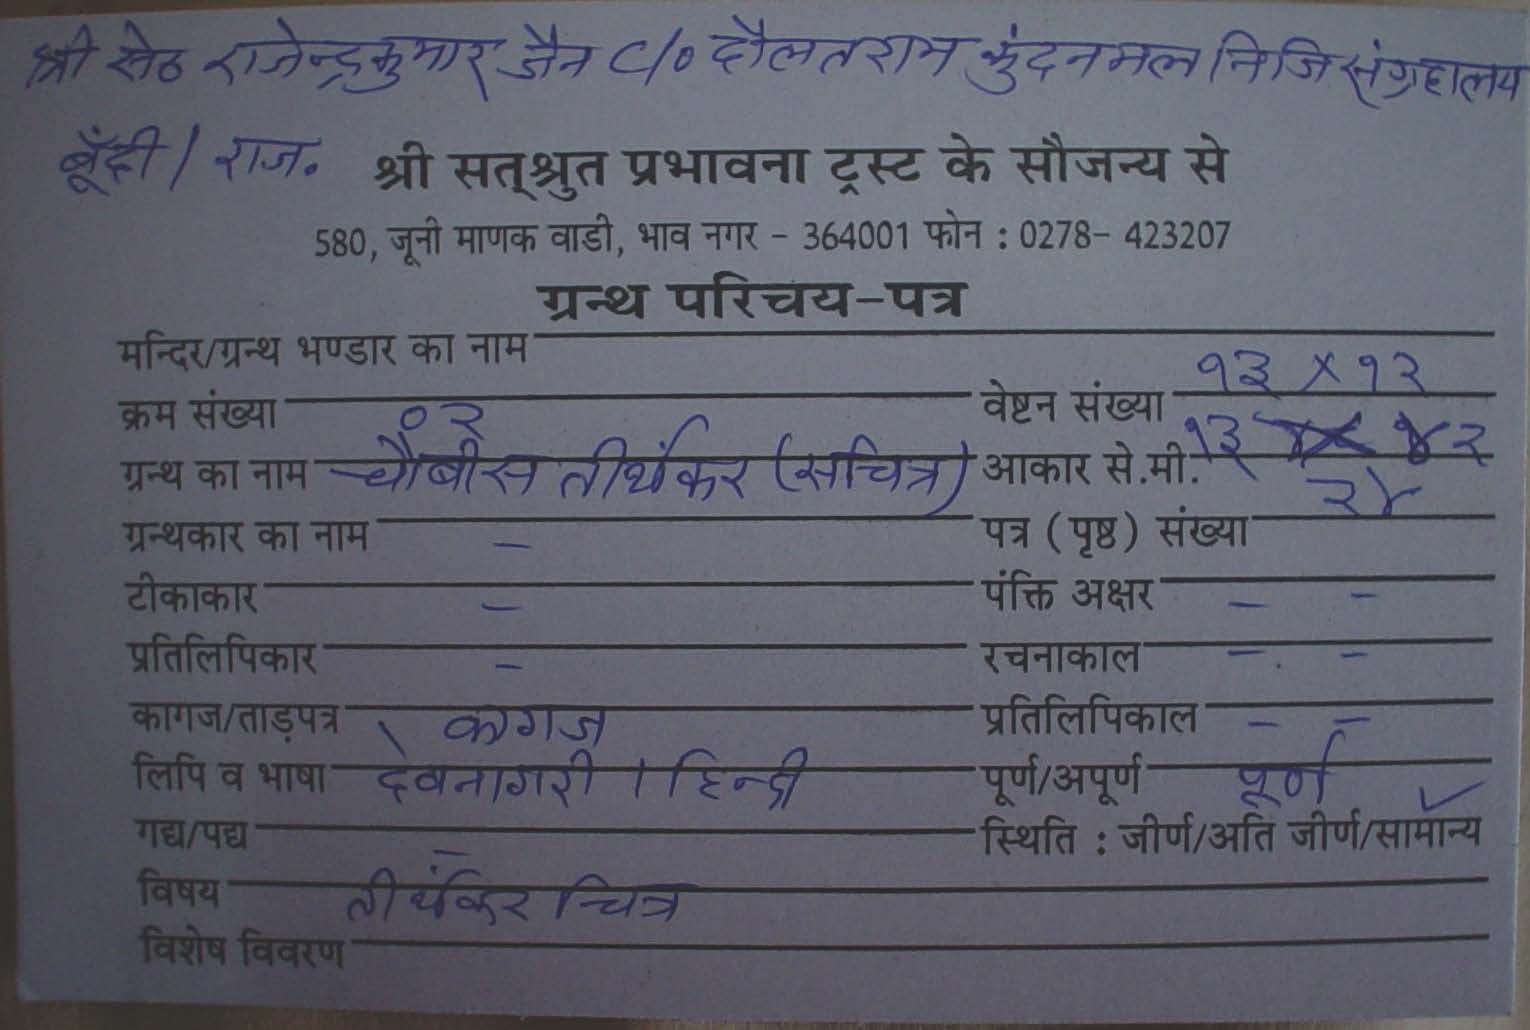 श्री सेठ राजेन्द्रकुमार जैन C/o दौलतराम कुंदनमल निजि संग्रहालय
बूँदी / राज. श्री सत्श्रुत प्रभावना ट्रस्ट के सौजन्य से
580, जूनी माणक वाडी, भाव नगर - 364001 फोन : 0278- 423207
ग्रन्थ परिचय-पत्र
मन्दिर/ग्रन्थ भण्डार का नाम
क्रम संख्या ०२ वेष्टन संख्या १३ x १२
ग्रन्थ का नाम चौबीस तीर्थंकर (सचित्र) आकार से.मी. १३
ग्रन्थकार का नाम - पत्र (पृष्ठ) संख्या २४
टीकाकार - पंक्ति अक्षर - -
प्रतिलिपिकार - रचनाकाल - -
कागज/ताड़पत्र कागज प्रतिलिपिकाल - -
लिपि व भाषा देवनागरी । हिन्दी पूर्ण/अपूर्ण पूर्ण
गद्य/पद्य - स्थिति : जीर्ण/अति जीर्ण/सामान्य ✓
विषय तीर्थंकर चित्र
विशेष विवरण